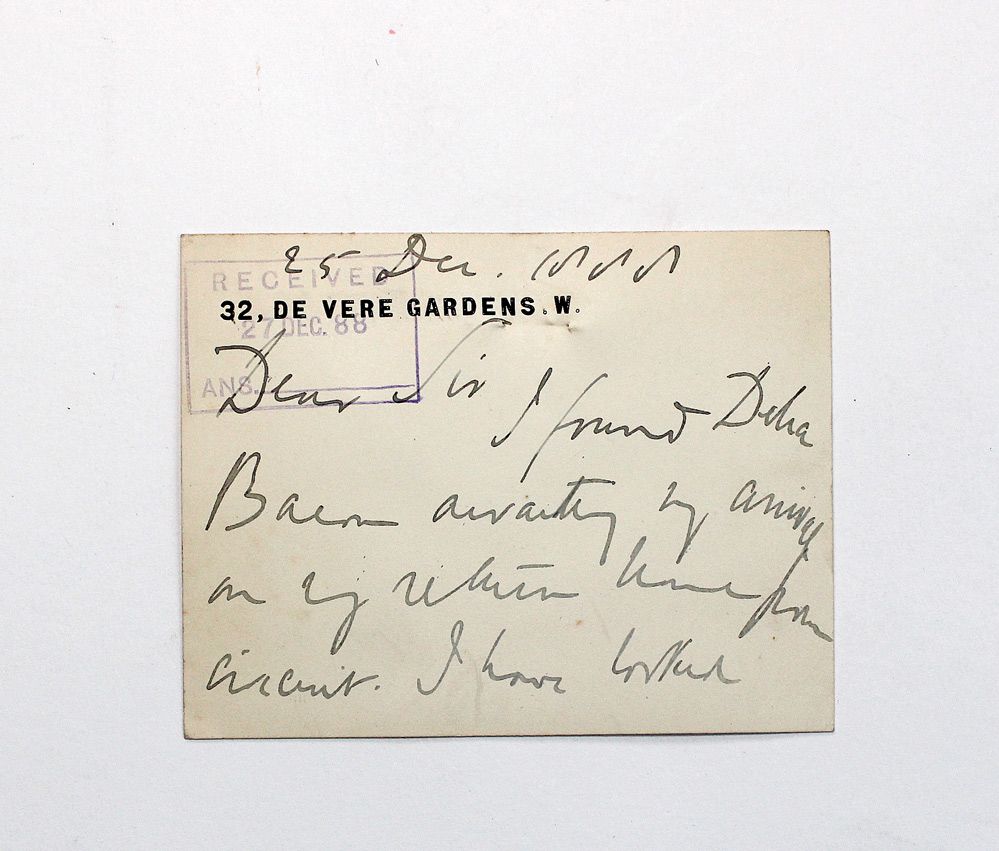 25 Dec. 1888
RECEIVED
32, DE VERE GARDENS. W.
27 DEC. 88
ANS.
Dear Sir
I found Delia
Bacon awaiting my arrival
on my return home from
circuit. I have looked